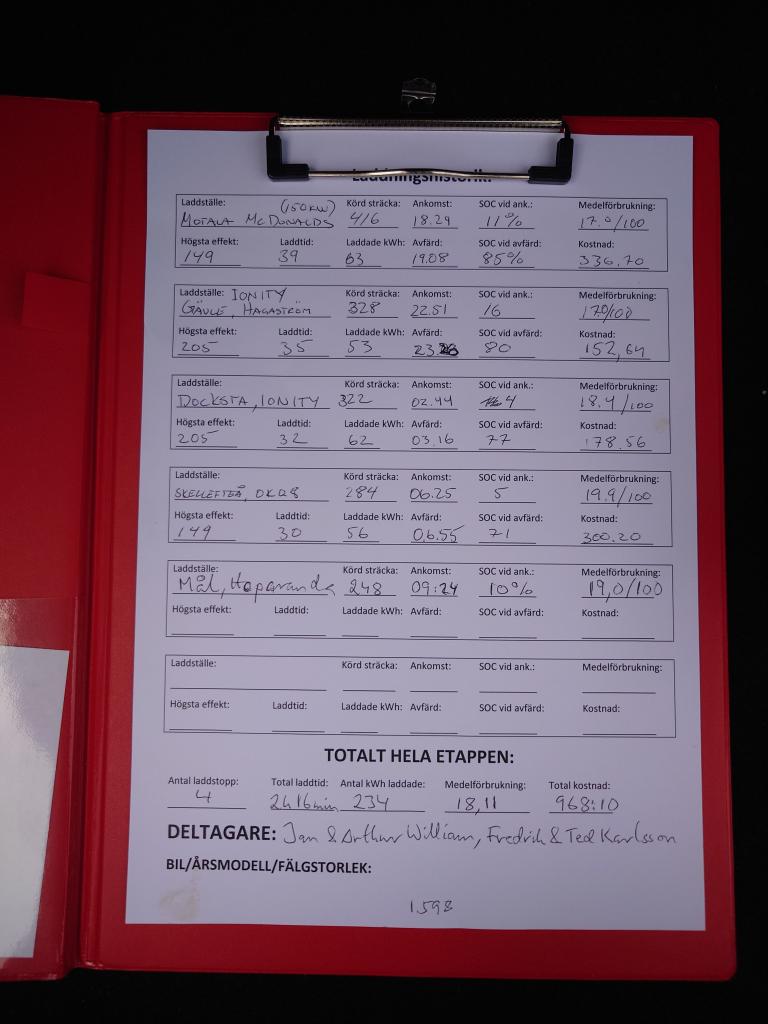 Laddningshistorik:
Laddställe: (150KW) Körd sträcka: Ankomst: SOC vid ank.: Medelförbrukning:
MOTALA MCDONALDS 416 18.29 11% 17.0/100
Högsta effekt: Laddtid: Laddade kWh: Avfärd: SOC vid avfärd: Kostnad:
149 39 63 19.08 85% 336.70
Laddställe: IONITY Körd sträcka: Ankomst: SOC vid ank.: Medelförbrukning:
GÄVLE, HAGASTRÖM 328 22.51 16 17.0/100
Högsta effekt: Laddtid: Laddade kWh: Avfärd: SOC vid avfärd: Kostnad:
205 35 53 80 152,64
Laddställe: Körd sträcka: Ankomst: SOC vid ank.: Medelförbrukning:
DOCKSTA, IONITY 322 02.44 4 18.4/100
Högsta effekt: Laddtid: Laddade kWh: Avfärd: SOC vid avfärd: Kostnad:
205 32 62 03.16 77 178.56
Laddställe: Körd sträcka: Ankomst: SOC vid ank.: Medelförbrukning:
SKELLEFTEÅ, OKQ8 284 06.25 5 19.9/100
Högsta effekt: Laddtid: Laddade kWh: Avfärd: SOC vid avfärd: Kostnad:
149 30 56 06.55 71 300.20
Laddställe: Körd sträcka: Ankomst: SOC vid ank.: Medelförbrukning:
Mål, Haparanda 248 09:24 10% 19,0/100
Högsta effekt: Laddtid: Laddade kWh: Avfärd: SOC vid avfärd: Kostnad:
Laddställe: Körd sträcka: Ankomst: SOC vid ank.: Medelförbrukning:
Högsta effekt: Laddtid: Laddade kWh: Avfärd: SOC vid avfärd: Kostnad:
TOTALT HELA ETAPPEN:
Antal laddstopp: Total laddtid: Antal kWh laddade: Medelförbrukning: Total kostnad:
4 2h 16min 234 18,11 968:10
DELTAGARE: Jan & Arthur William, Fredrik & Ted Karlsson
BIL/ÅRSMODELL/FÄLGSTORLEK:
1598